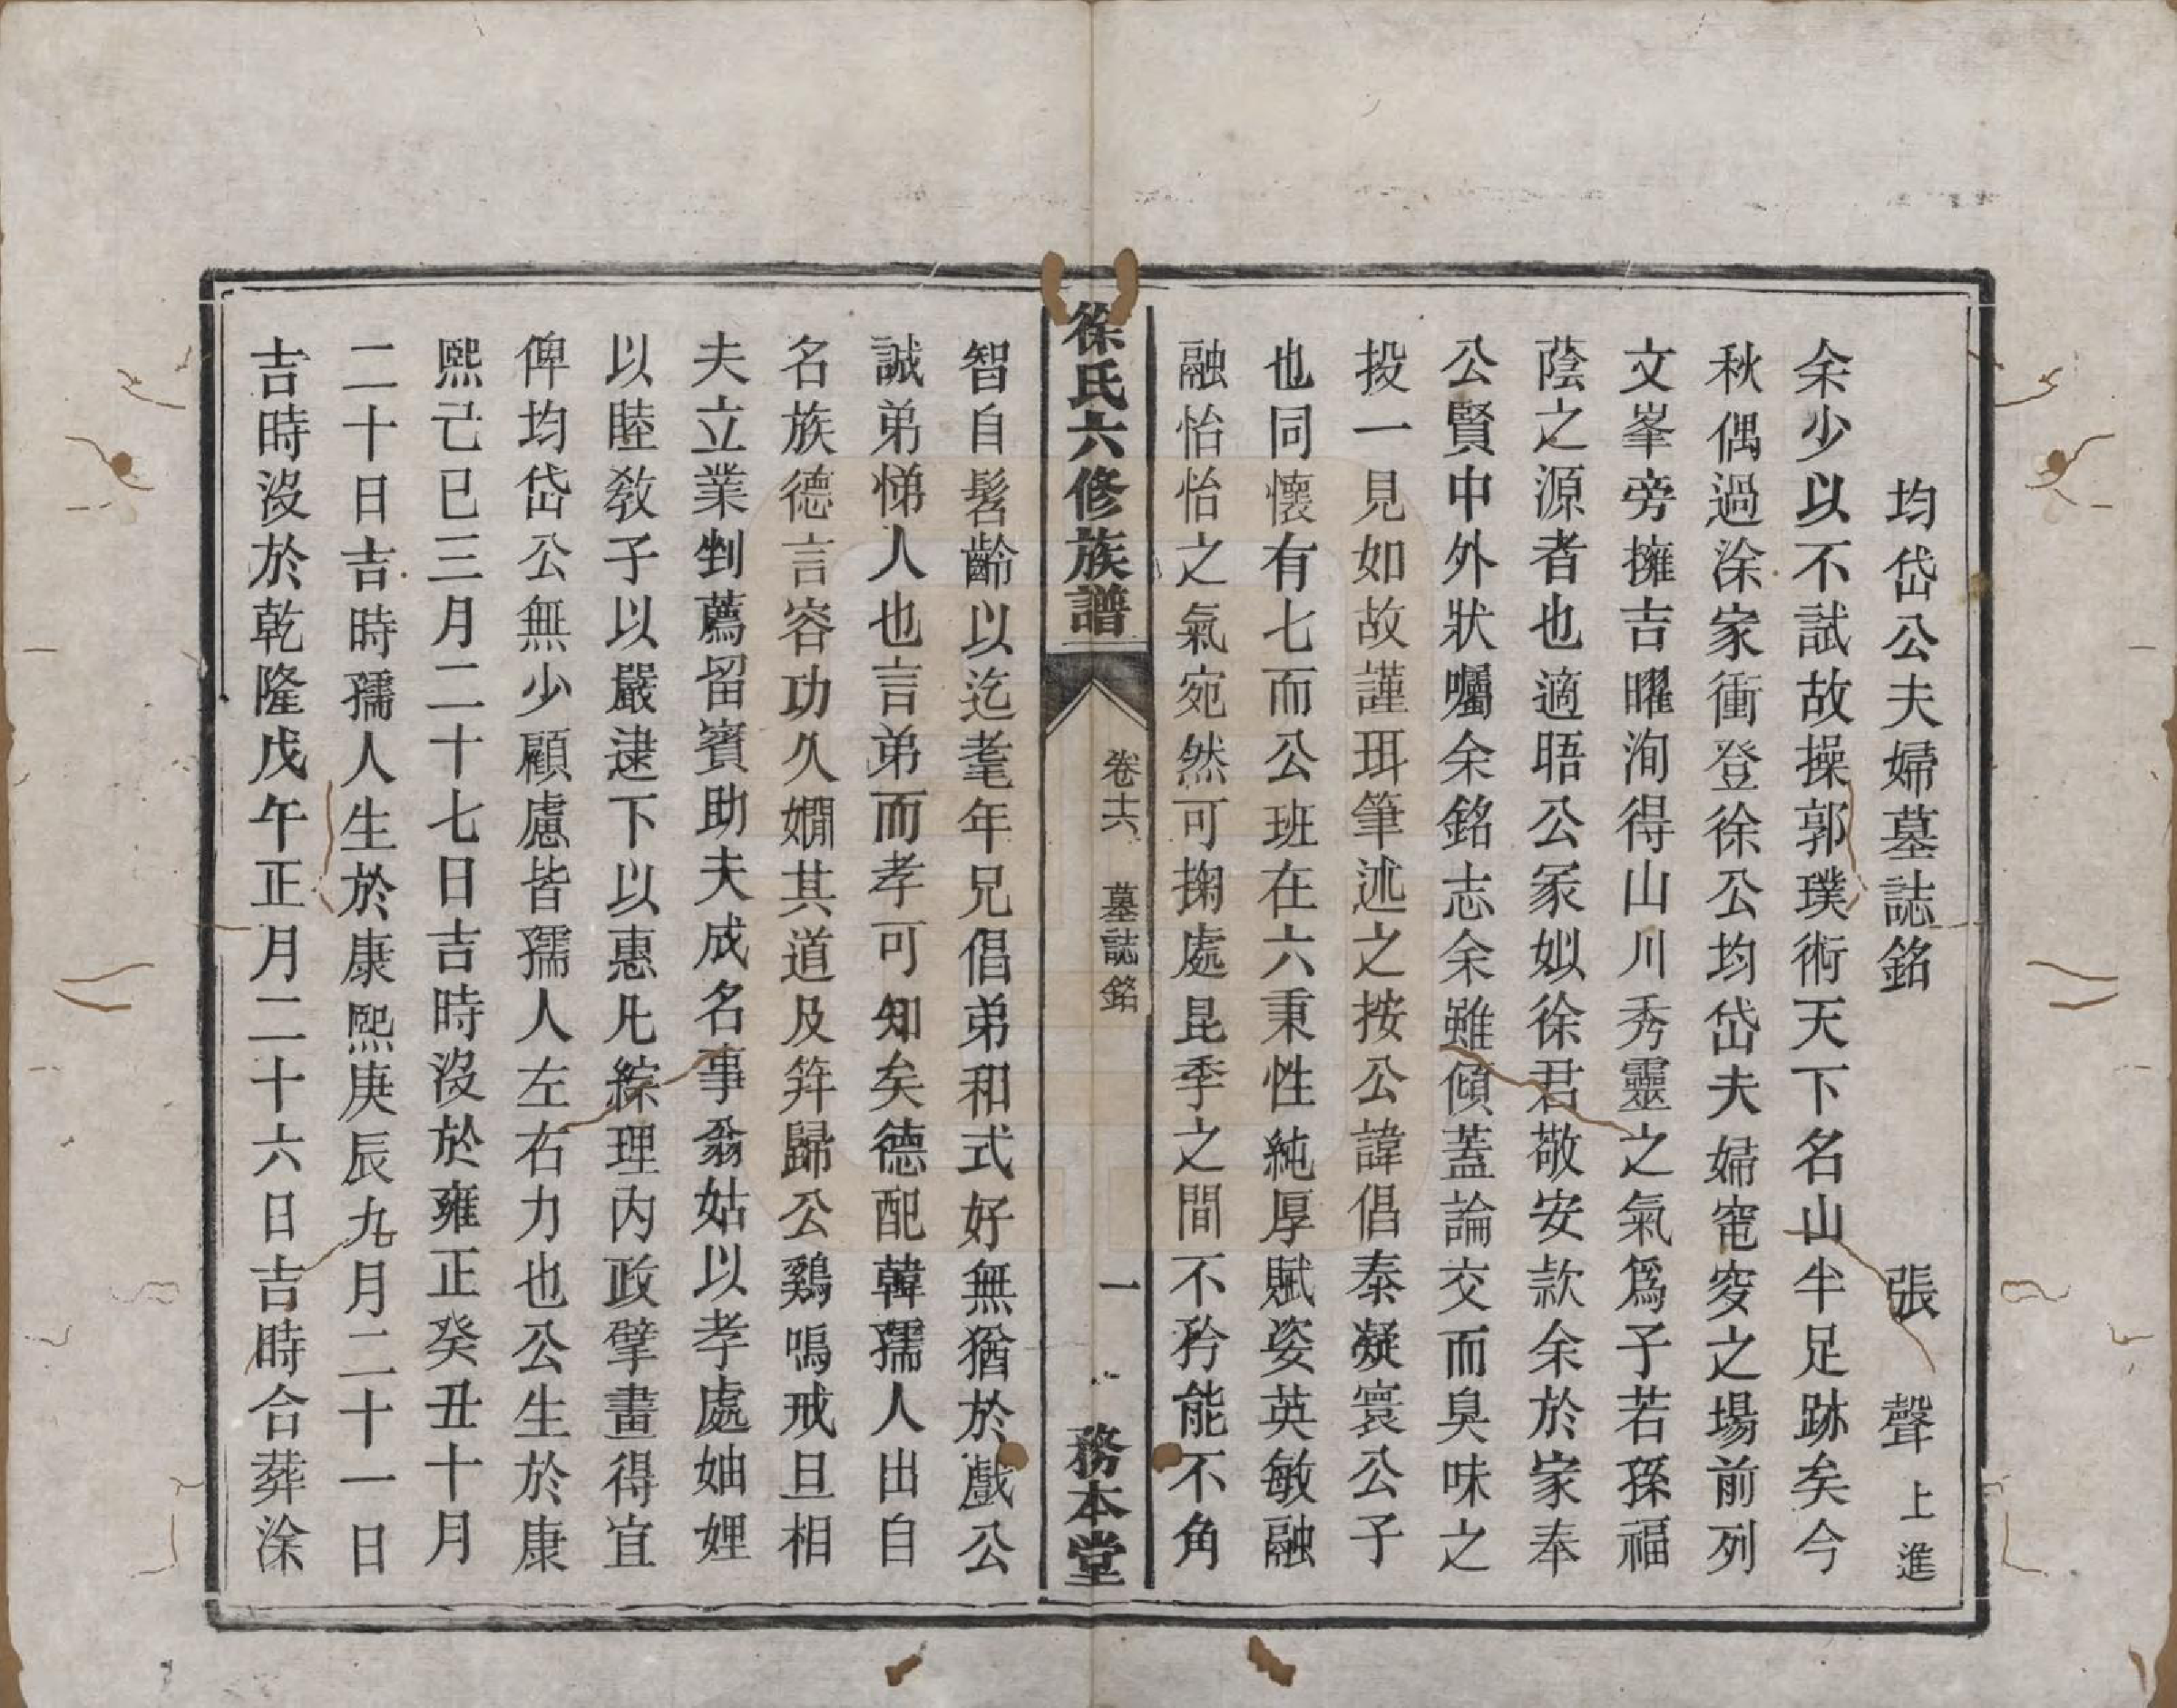 均岱公夫婦墓誌銘 張聲上進
余少以不試故操郭璞術天下名山半足跡矣今
秋偶過涂家衝登徐公均岱夫婦窀穸之場前列
文峯旁擁吉曜洵得山川秀靈之氣爲子若孫福
蔭之源者也適晤公冢姒徐君敬安款余於家奉
公賢中外狀囑余銘志余雖傾蓋論交而臭味之
投一見如故謹珥筆述之按公諱倡泰凝寰公子
也同懷有七而公班在六秉性純厚賦姿英敏融
融怡怡之氣宛然可掬處昆季之間不矜能不角
徐氏六修族譜 卷十六 墓誌銘 一 務本堂
智自髫齡以迄耄年兄倡弟和式好無猶於戲公
誠弟悌人也言弟而孝可知矣德配韓孺人出自
名族德言容功久嫺其道及笄歸公鷄鳴戒旦相
夫立業剉薦留賓助夫成名事翁姑以孝處妯娌
以睦敎子以嚴逮下以惠凡綜理內政擘畫得宜
俾均岱公無少顧慮皆孺人左右力也公生於康
熙己巳三月二十七日吉時沒於雍正癸丑十月
二十日吉時孺人生於康熙庚辰九月二十一日
吉時沒於乾隆戊午正月二十六日吉時合葬涂